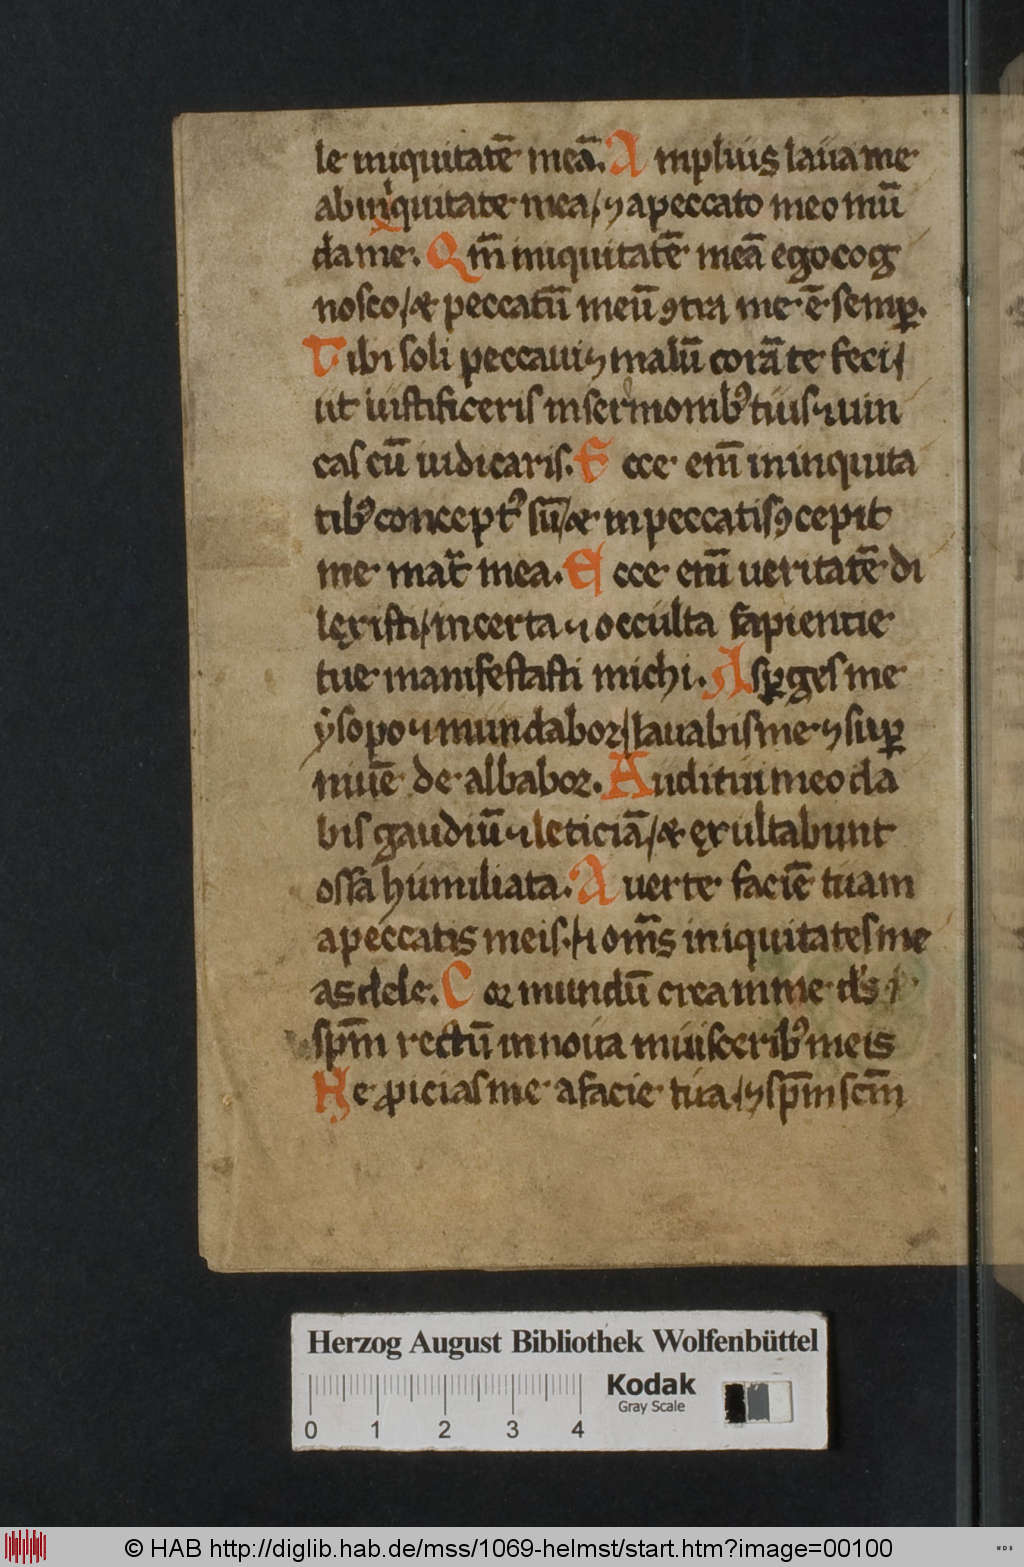 le iniquitatē meā. Amplius laua me
ab iniquitate mea / ⁊ a peccato meo mū
da me. Qm̄ iniquitatē meā ego cog
nosco / & peccatū meū ꝯtra me ē semꝑ.
Tibi soli peccaui ⁊ malū corā te feci /
ut iustificeris in sermonibꝰ tuis ⁊ uin
cas cū iudicaris. Ecce em̄ in inquita
tibꝰ conceptꝰ sū / & in peccatis ꝯcepit
me mat̄ mea. Ecce enī ueritatē di
lexisti / incerta ⁊ occulta sapientie
tue manifestasti michi. Asꝑges me
ẏsopo ⁊ mundabor / lauabis me ⁊ suꝑ
niuē de albabor. Auditui meo da
bis gaudiū ⁊ leticiā / & exultabunt
ossa humiliata. Auerte faciē tuam
a peccatis meis. / ⁊ om̄s iniquitates me
as dele. Cor mundū crea in me ds̄ /
spm̄ rectū innoua in uisceribꝰ meis
Ne ꝓicias me a facie tua / ⁊ spm̄ scm̄
Herzog August Bibliothek Wolfenbüttel
Kodak
Gray Scale
0 1 2 3 4
© HAB http://diglib.hab.de/mss/1069-helmst/start.htm?image=00100